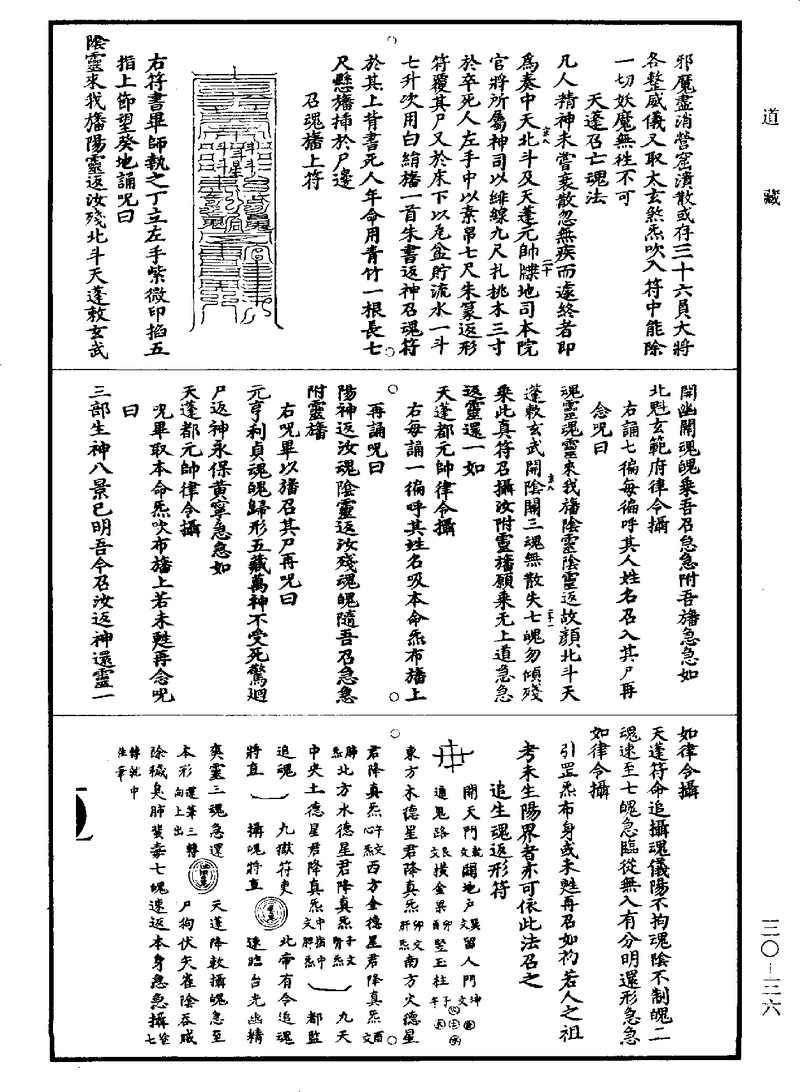 道藏
邪魔盡消營窟潰散或存三十六員大將
各整威儀又取太玄煞炁吹入符中能除
一切妖魔無徃不可
天蓬召亡魂法
凡人精神未嘗衰散忽無疾而遽終者即
爲奏中天北斗及天蓬元帥牒地司本院
官將所屬神司以緋線九尺扎桃木三寸
於卒死人左手中以素帛七尺朱篆返形
符覆其尸又於床下以瓦盆貯流水一斗
七升次用白絹旛一首朱書返神召魂符
於其上背書死人年命用青竹一根長七
尺懸旛揷於尸邊
召魂旛上符
右符書畢師執之丁立左手紫微印掐五
指上節望癸地誦呪曰
陰靈來我旛陽靈返汝殘北斗天蓬敕玄武
開幽關魂魄乘吾召急急附吾旛急急如
北魁玄範府律令攝
右誦七徧每徧呼其人姓名召入其尸再
念呪曰
魂靈魂靈來我旛陰靈陰靈返故顔北斗天
蓬敕玄武開陰關三魂無散失七魄勿傾殘
乘此真符召攝汝附靈旛願乘无上道急急
返靈還一如
天蓬都元帥律令攝
右每誦一徧呼其姓名吸本命炁布旛上
再誦呪曰
陽神返汝魂陰靈返汝殘魂魄隨吾召急急
附靈旛
右呪畢以旛召其尸再呪曰
元亨利貞魂魄歸形五藏萬神不受死驚廻
尸返神永保黄寧急急如
天蓬都元帥律令攝
呪畢取本命炁吹布旛上若未甦再念呪
曰
三部生神八景已明吾今召汝返神還靈一
如律令攝
天蓬符命追攝魂儀陽不拘魂陰不制魄二
魂速至七魄急臨從無入有分明還形急急
如律令攝
引罡炁布身或未甦再召如初若人之祖
考未生陽界者亦可依此法召之
追生魂返形符
開天門 閉地户 留人門
通鬼路 橫金梁 竪玉柱
東方木德星君降真炁 南方火德星
君降真炁 西方金德星君降真炁
北方水德星君降真炁
中央土德星君降真炁 都監
追魂 九獄符吏 北帝有令追魂
將直 攝魄將直 速臨台光幽精
爽靈三魂急還 天蓬降敕攝魄急至
本形 尸狗伏矢雀陰吞賊
除穢臭肺蜚毒七魄速返本身急急攝
三〇-三六